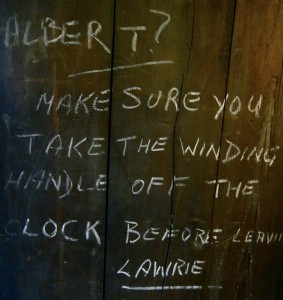 ALBERT?
MAKE SURE YOU
TAKE THE WINDING
HANDLE OFF THE
CLOCK BEFORE LEAVI
LAWRIE